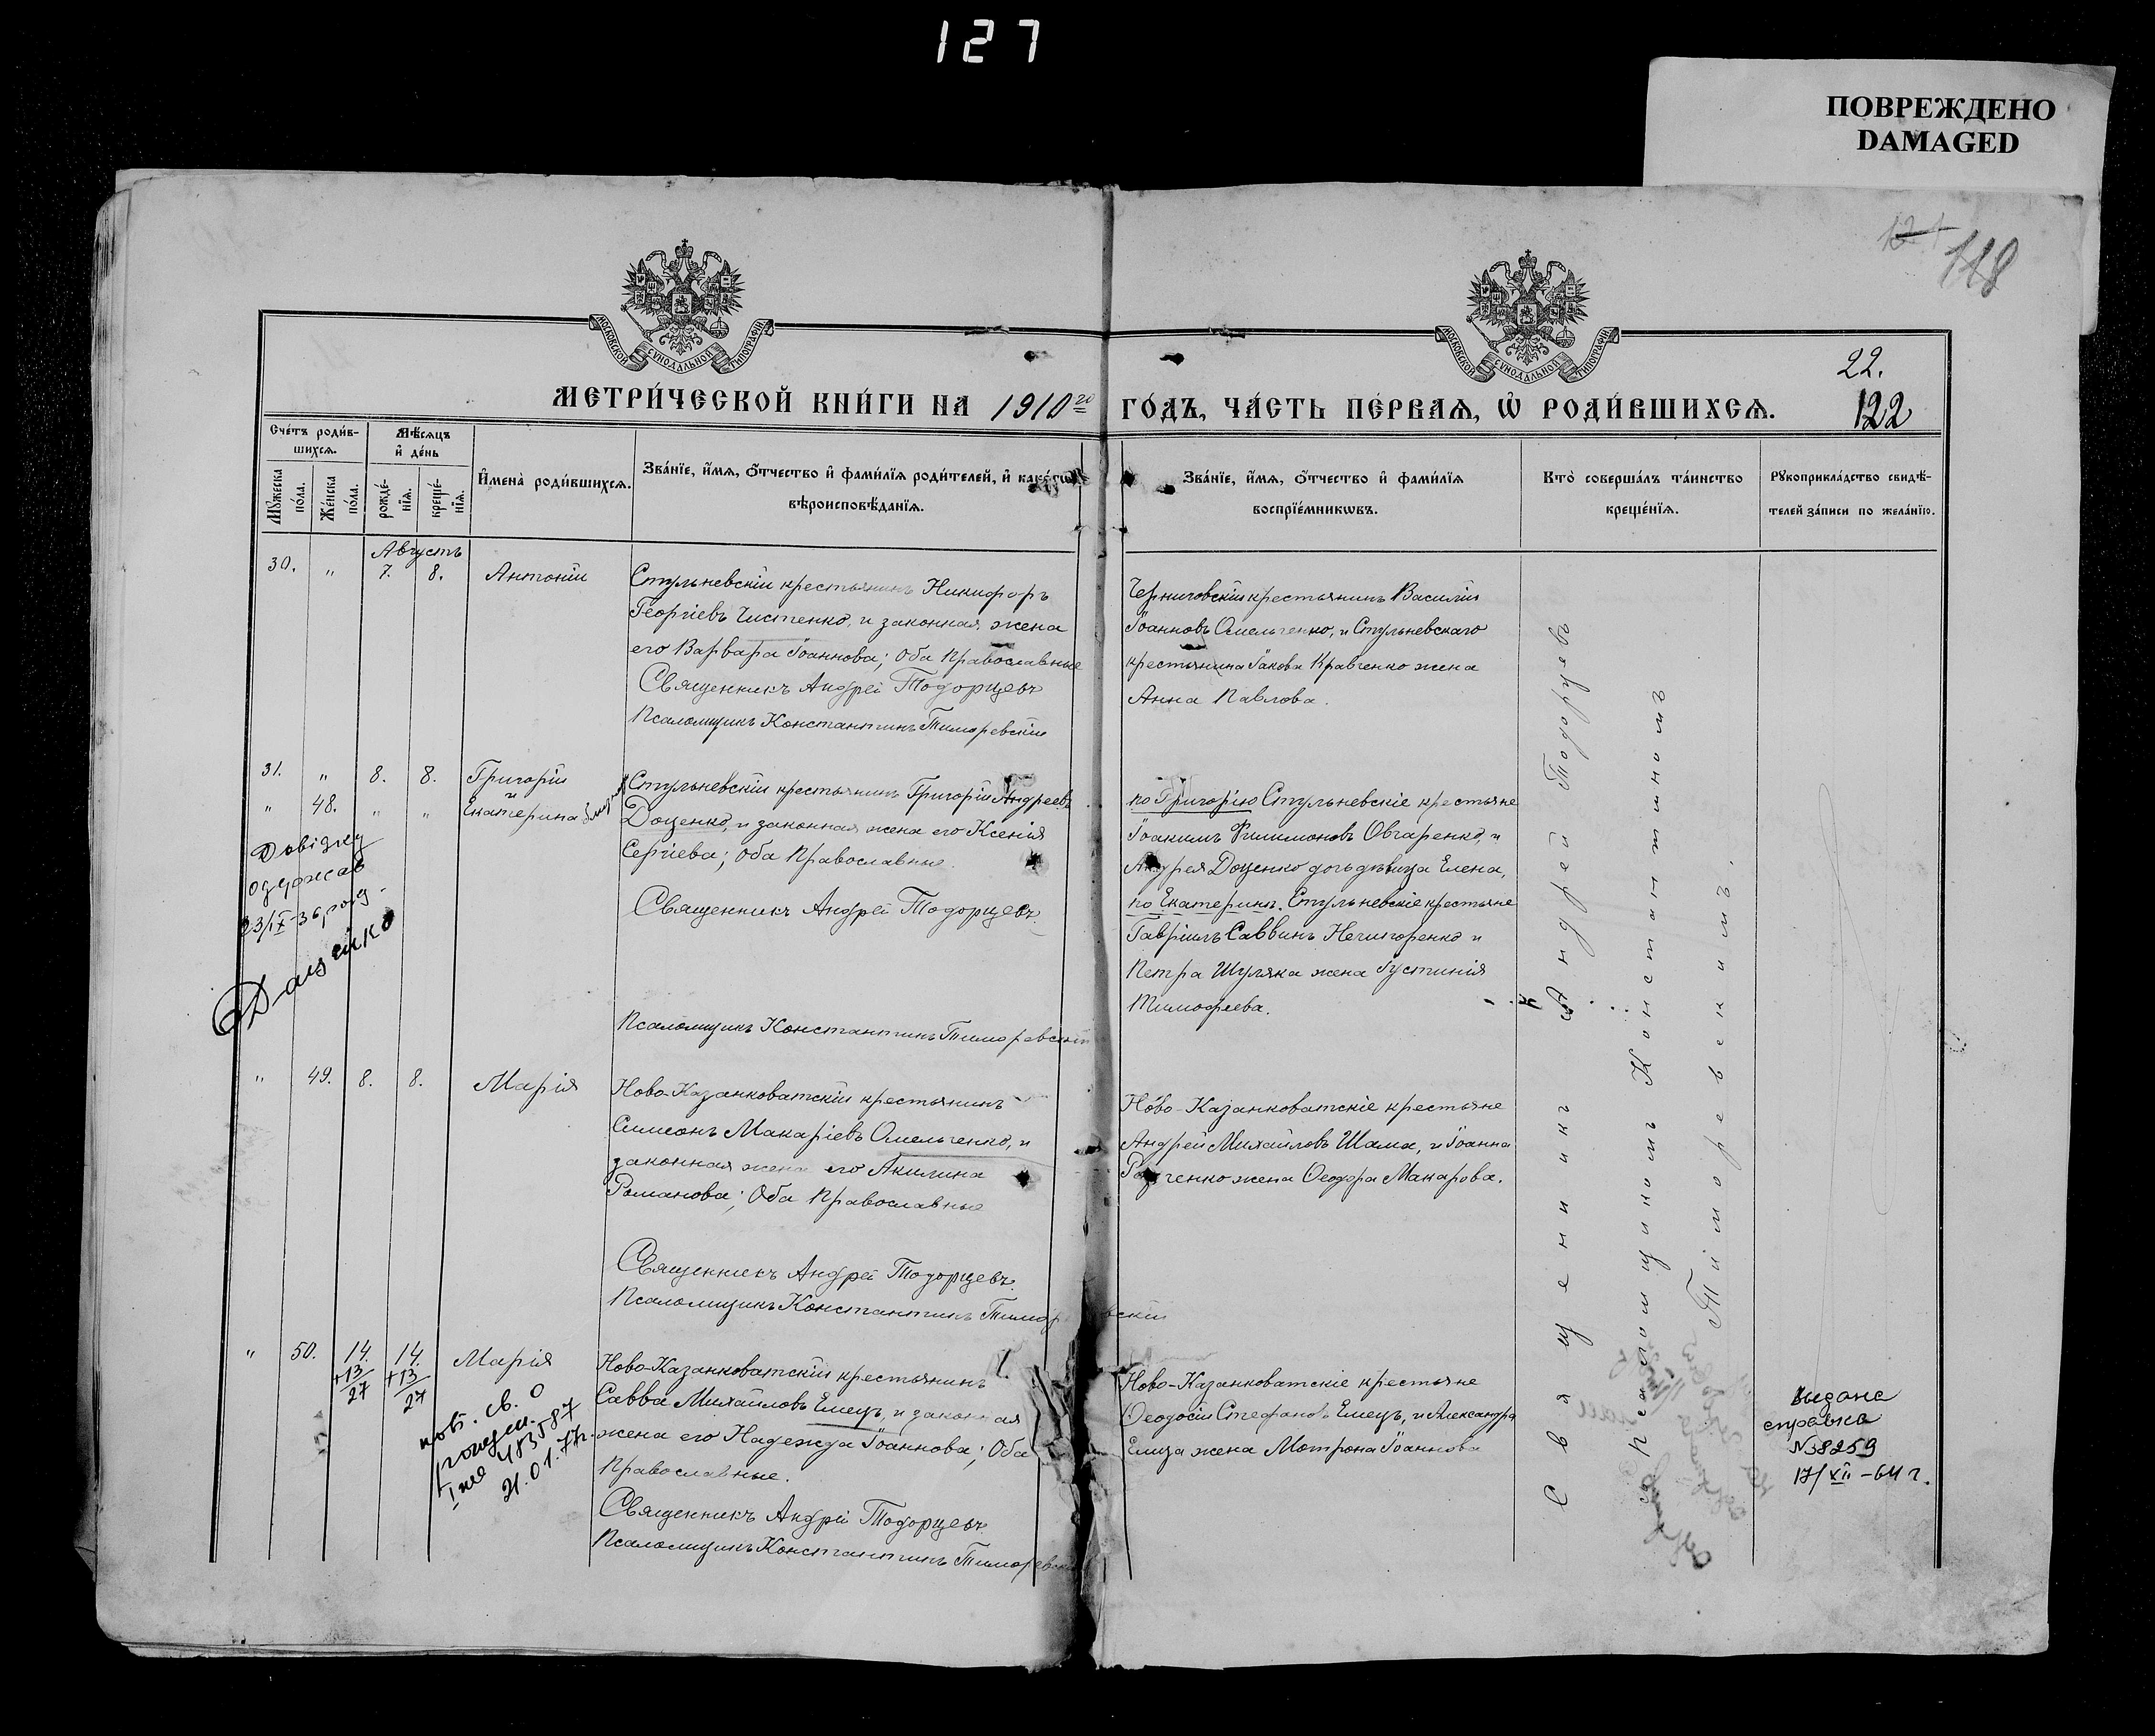 127
ПОВРЕЖДЕНО
DAMAGED
118
МОСКОВСКОЙ СѴНОДАЛЬНОЙ ТИПОГРАФІИ
МОСКОВСКОЙ СѴНОДАЛЬНОЙ ТИПОГРАФІИ
22.
МЕТРИ́ЧЕСКОЙ КНИ́ГИ НА 1910го ГО́ДЪ, ЧА́СТЬ ПЕ́РВАѦ, Ѡ҆ РОДИ́ВШИХСѦ.
122
Сче́тъ роди́в-
шихсѧ.
Мѣ́сѧцъ
и҆ де́нь
Мꙋ́жеска по́ла.
Же́нска по́ла.
рожде́-нїѧ.
креще́-нїѧ.
И҆мена̀ роди́вшихсѧ.
Зва́нїе, и҆́мѧ, ѻ҆́тчество и҆ фами́лїѧ роди́телей, и҆ како́гѡ
вѣроисповѣ́данїѧ.
Зва́нїе, и҆́мѧ, ѻ҆́тчество и҆ фами́лїѧ
воспрїе́мникѡвъ.
Кто̀ соверша́лъ та́инство
креще́нїѧ.
Рꙋкоприкла́дство свидѣ́-
телей за́писи по жела́нїю.
Августъ
30. " 7. 8. Антоній
Стульневскій крестьянинъ Никифоръ
Георгіевъ Чистенко, и законная жена
его Варвара Іоаннова; Оба Православные
Священникъ Андрей Тодорцевъ
Псаломщикъ Константинъ Тиморевскій
Черниговскій крестьянинъ Василій
Іоанновъ Омельченко, и Стульневскаго
крестьянина Іакова Кравченко жена
Анна Павлова.
31. " 8. 8. Григорій
и
" 48. " " Екатерина
Стульневскій крестьянинъ Григорій Андреевъ
Доценко, и законная жена его Ксенія
Сергіева; Оба Православные.
Священникъ Андрей Тодорцевъ
Псаломщикъ Константинъ Тиморевскій
по Григорію Стульневскіе крестьяне
Іоакимъ Филимоновъ Овчаренко, и
Андрея Доценко дочь дѣвица Елена,
по Екатеринѣ. Стульневскіе крестьяне
Гавріилъ Саввинъ Нечипоренко и
Петра Шуляка жена Іустинія
Тимофеева.
Довідку
одержав
23/IX-36 род.
" 49. 8. 8. Марія
Ново-Казанковатскій крестьянинъ
Симеонъ Макаріевъ Омельченко, и
законная жена его Акилина
Романова; Оба Православные
Священникъ Андрей Тодорцевъ
Псаломщикъ Константинъ Тиморевскій
Ново-Казанковатскіе крестьяне
Андрей Михайловъ Шама, и Іоанна
жена Ѳеодора Макарова.
" 50. 14. 14. Марія
+13 +13
27 27
пов. св. о
рожден.
483587
21.01.77г.
Ново-Казанковатскій крестьянинъ
Савва Михайловъ Емецъ, и законная
жена его Надежда Іоаннова; Оба
Православные.
Священникъ Андрей Тодорцевъ
Псаломщикъ Константинъ Тиморевскій
Ново-Казанковатскіе крестьяне
Ѳеодосій Стефановъ Емецъ, и Александра
Емца жена Мотрона Іоаннова
Священникъ Андрей Тодорцевъ
съ псаломщикомъ Константиномъ
Тиморевскимъ.
Выдана
справка
№8259
17/XII-64 г.